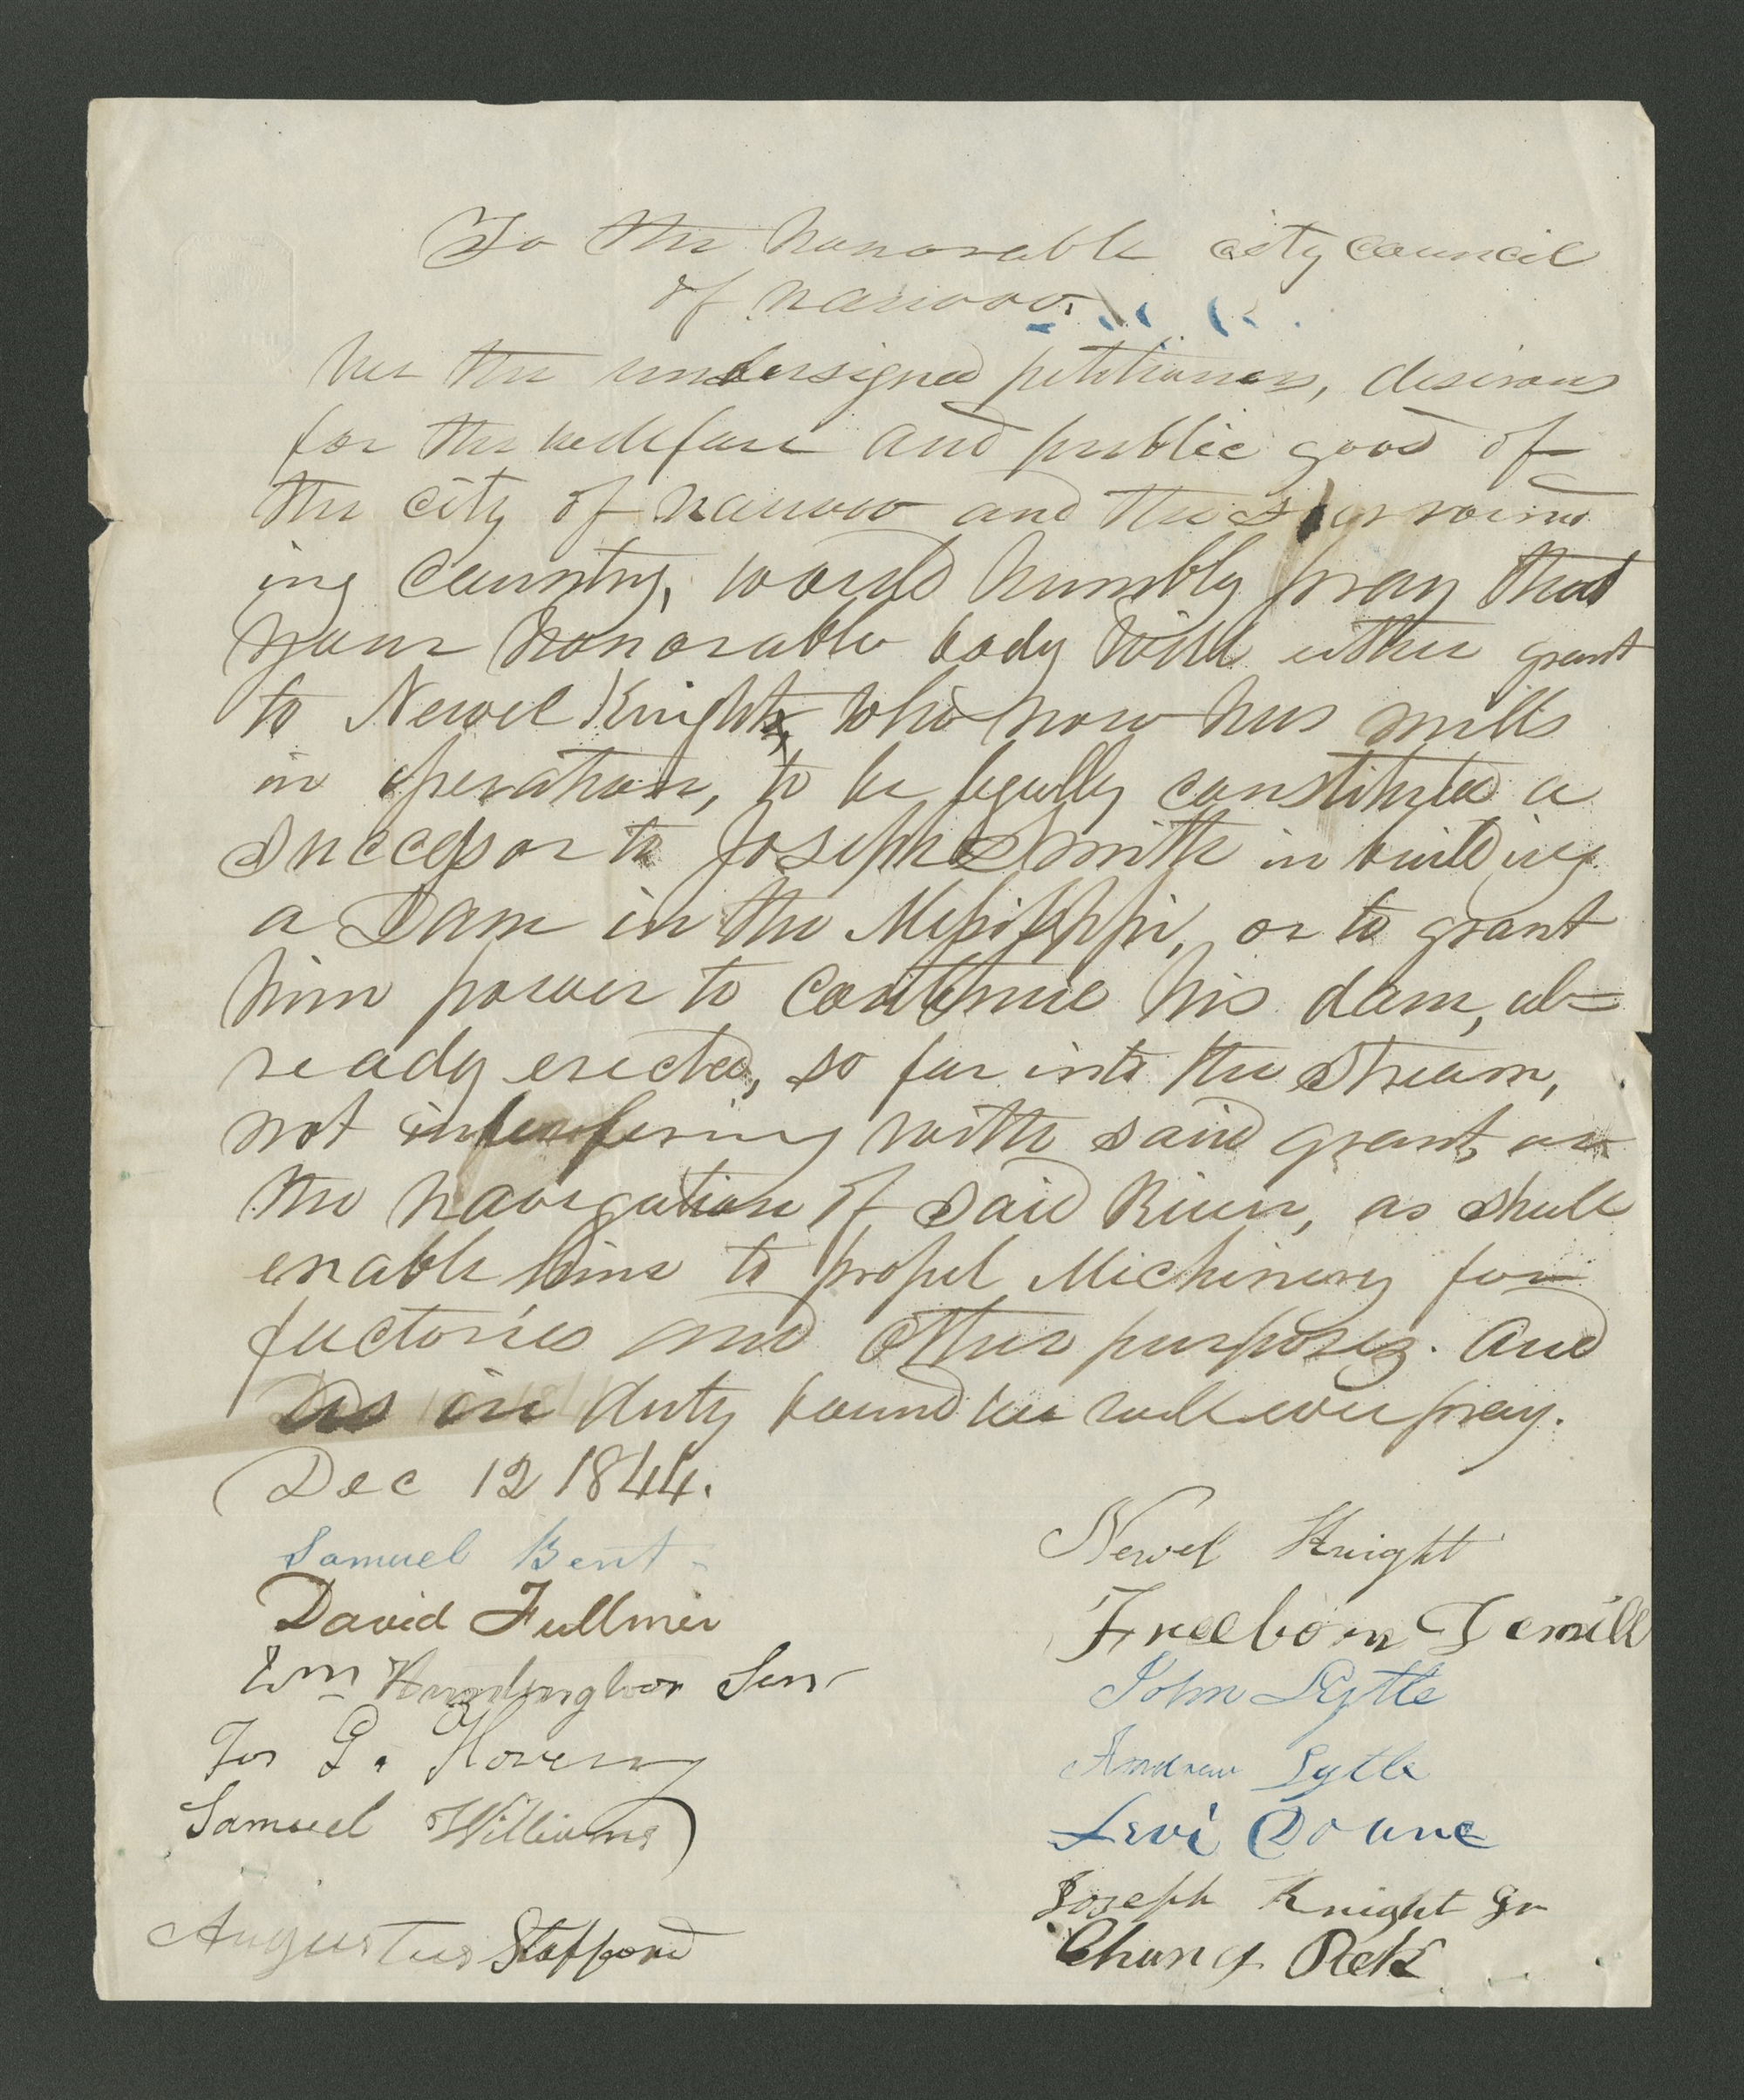 To the honorable city council
of nauvoo.
We the undersigned petitioners, desirous
for the wellfare and public good of
the city of nauvoo and the surround
ing country, would humbly pray that
your honorable body would either grant
to Newel Knight, who now has mills
in operation, to be legally constituted a
successor to Joseph Smith in building
a Dam in the Missisippi, or to grant
him power to continue his dam, al=
ready erected, so far into the stream,
not interfering with said grant, or
the navigation of said River, as shall
enable him to propel Michinery for
factories and other purposes. And
as in duty bound we will ever pray.
Dec 12 1844.
Samuel Bent
David Fullmer
Wm Huntington Sen
Jos G. Hovey
Samuel Williams
Augustus Stafford
Newel Knight
Freeborn Demill
John Lytle
Andrew Lytle
Levi Doane
Joseph Knight Jr